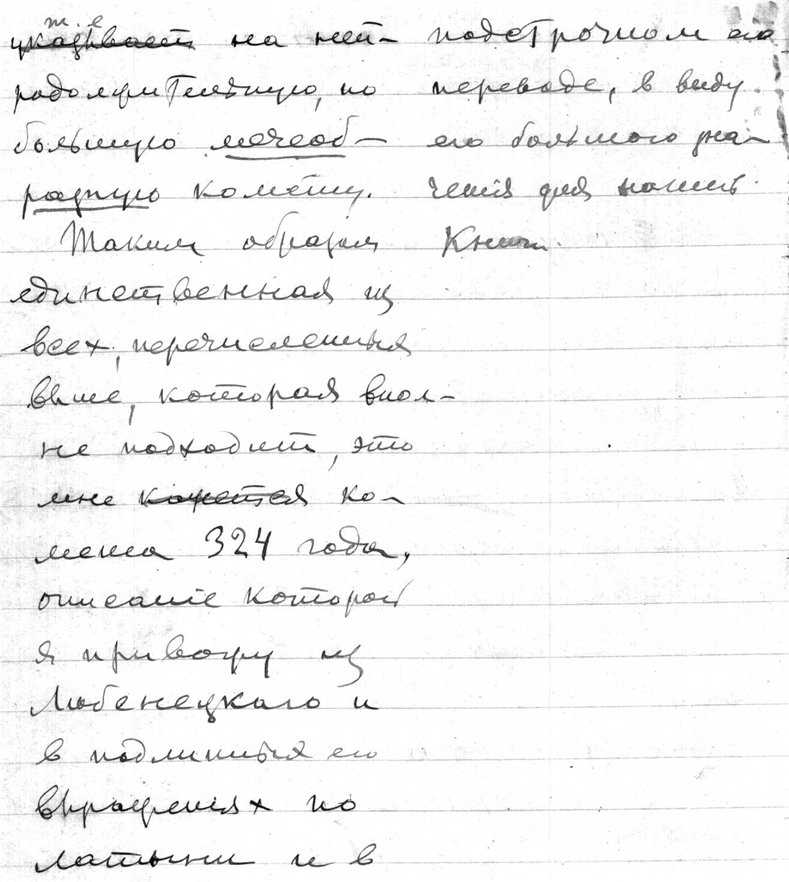 т. е
указывает на неп-
родолжительную, но
большую мечеоб-
разную комету.
Таким образом
единственная из
всех, перечисленных
выше, которая впол-
не подходит, это
мне кажется ко-
мета 324 года,
описание которой
я привожу из
Любенецкаго и
в подлинных его
выражениях по
латыни и в
подстрочном его
переводе, в виду
его большого зна-
чения для нашей
Книги.